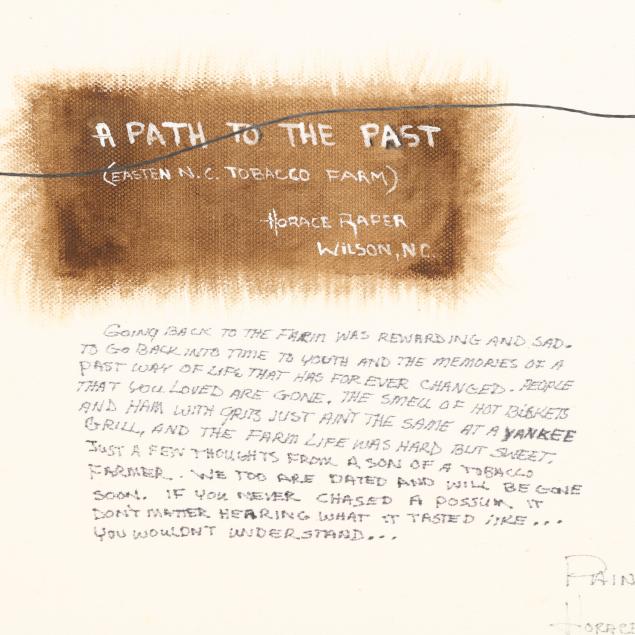 A PATH TO THE PAST
(EASTEN N.C. TOBACCO FARM)
HORACE RAPER
WILSON, N.C.
GOING BACK TO THE FARM WAS REWARDING AND SAD.
TO GO BACK INTO TIME TO YOUTH AND THE MEMORIES OF A
PAST WAY OF LIFE THAT HAS FOREVER CHANGED. PEOPLE
THAT YOU LOVED ARE GONE. THE SMELL OF HOT BISKETS
AND HAM WITH GRITS JUST AINT THE SAME AT A YANKEE
GRILL, AND THE FARM LIFE WAS HARD BUT SWEET.
JUST A FEW THOUGHTS FROM A SON OF A TOBACCO
FARMER. WE TOO ARE DATED AND WILL BE GONE
SOON. IF YOU NEVER CHASED A POSSUM IT
DON'T MATTER HEARING WHAT IT TASTED LIKE...
YOU WOULDNT UNDERSTAND...
PAIN
HORACE